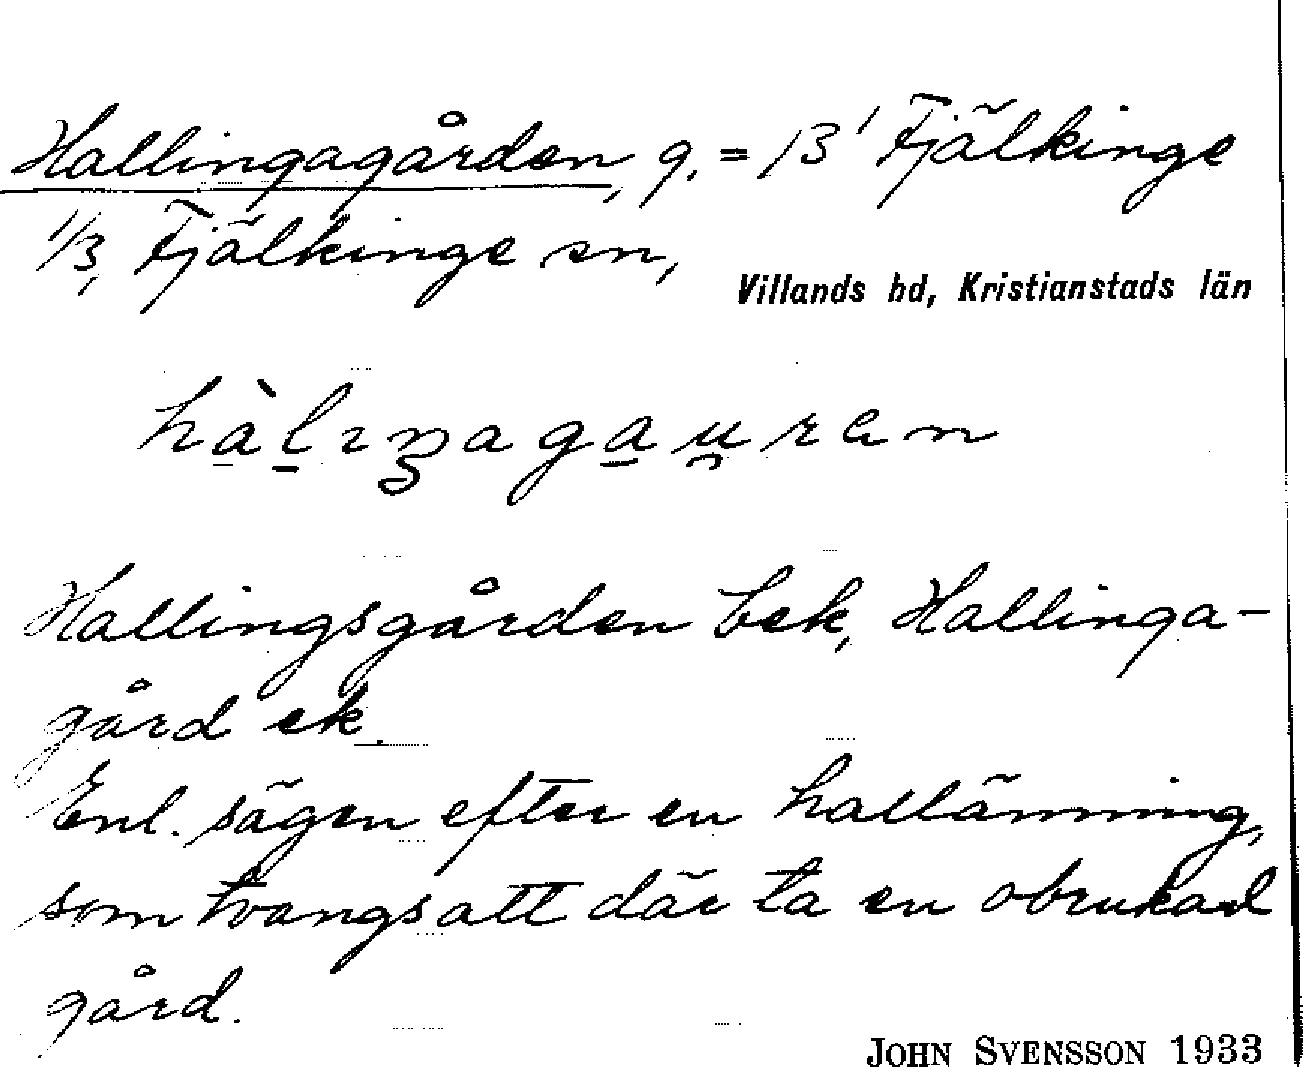 Hallingagården, g. = 13¹ Fjälkinge
1/3, Fjälkinge sn,
Villands hd, Kristianstads län
hàlıŋagau̯ran
Hallingsgården bek, Hallinga-
gård ek.
Enl. sägen efter en hallänning,
som tvangs att där ta en obrukad
gård.
JOHN SVENSSON 1933